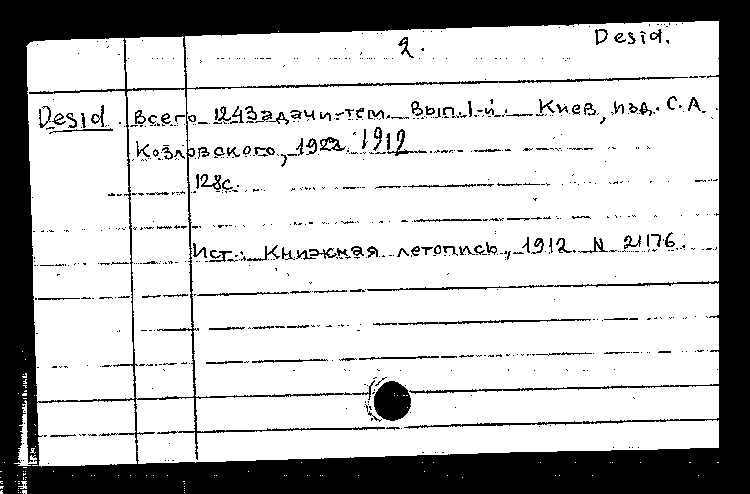 2.
Desid.
Desid. Всего 1243адачи-тем. Вып.1-й. Киев, изд. С.А.
Козловского, 1922. 1912
128с.
Ист.: Книжная летопись, 1912 N 21176.